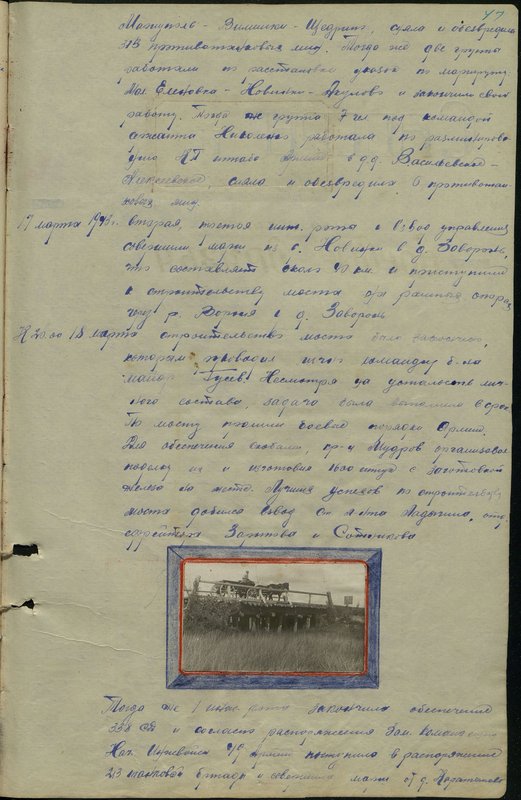 77
сняла и обезвредила
315 противотанковых мин. Тогда же две группы
работали по расстановке указок по маршруту
Еленовка - Новинки - и закончили свою
работу. Тогда же группа 7 чел под командой
работала по разминирова-
нию КП штаба в д.д. Васильевское -
Алексеевское, сняла и обезвредила 6 противотан-
ковых мин.
17 марта 1943г. вторая, третья инж. рота и взвод управления
совершили марш из с. Новинки в д. Заворонь,
что составляет около 20 км. и приступили
к строительству моста
р. Вороня в д. Заворонь
К 20.00 18 марта строительство моста было закончено,
которым руководил лично командир б-на
майор Гусев. Несмотря на усталость лич-
ного состава, задача была выполнена в срок
По мосту прошли боевые порядки Армии.
Для обеспечения скобами, Мудров организовал
поделку их и изготовил 1600 штук с заготовкой
железа на месте. Лучших успехов по строительству
моста добился взвод Ст. л-та
и Сотникова
Тогда же 1 инж. рота закончила обеспечение
358 СД и согласно распоряжения Зам. командующего
Нач. Инжвойск армии поступила в распоряжение
213 танковой бригады и совершила марш от д.